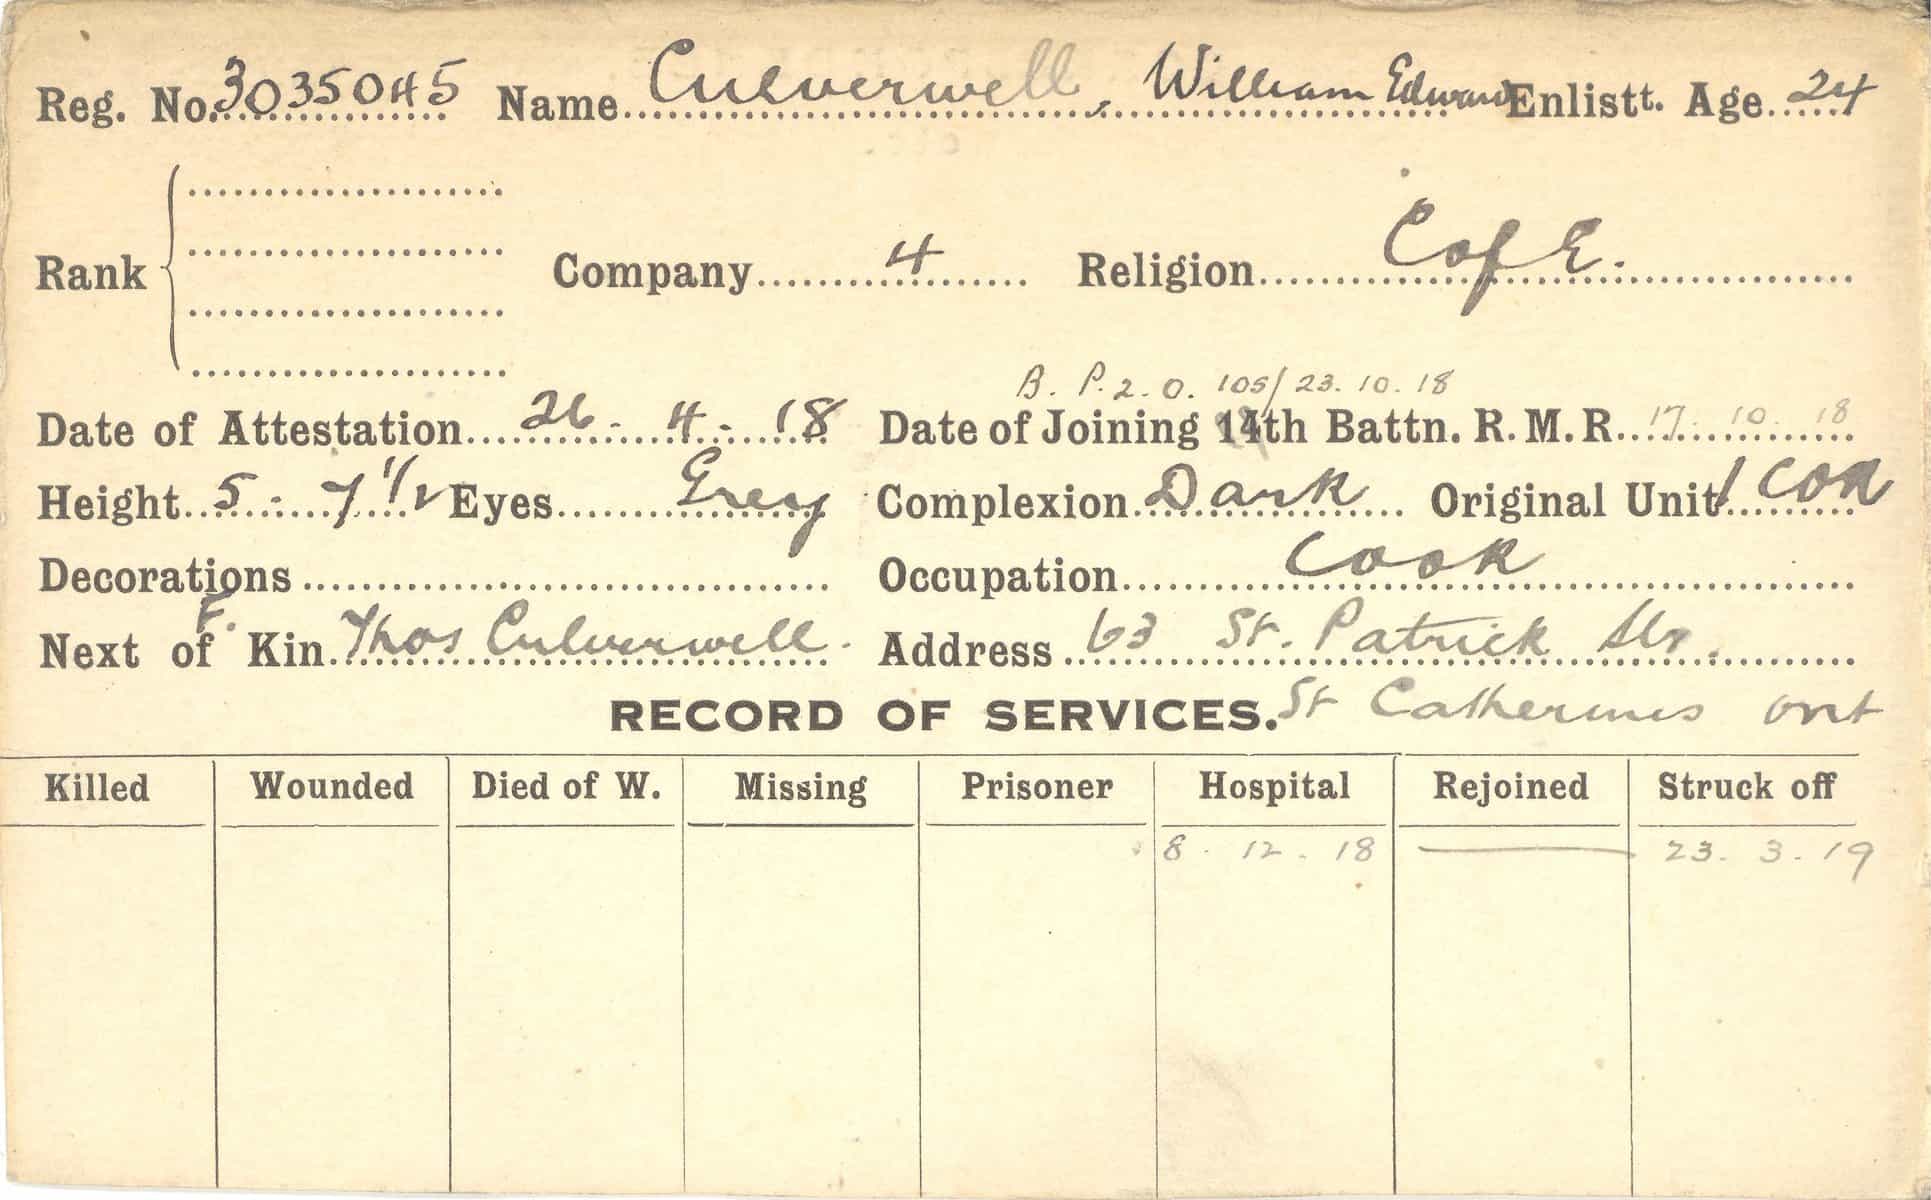 Reg. No. 3035045 Name Culverwell, William Edward Enlistt. Age 24
Rank Company 4 Religion C of E.
B. P. 2. O. 105/23.10.18
Date of Attestation 26-4-18 Date of Joining 14th Battn. R. M. R. 17.10.18
Height 5-7 1/2 Eyes Grey Complexion Dark Original Unit 1 COR
Decorations Occupation Cook
F.
Next of Kin Thos Culverwell. Address 63 St. Patrick Str.
RECORD OF SERVICES. St Catherines Ont
Killed Wounded Died of W. Missing Prisoner Hospital Rejoined Struck off
8-12-18 — 23.3.19